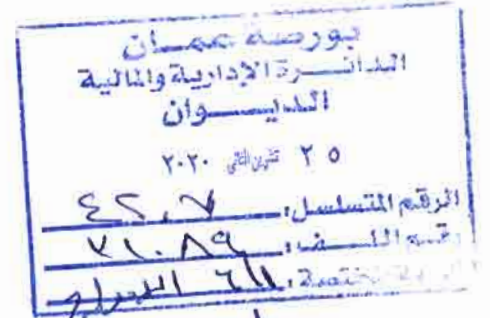 بورصة عمان
الدائرة الإدارية والمالية
الديوان
٢٥ تشرين الثاني ٢٠٢٠
الرقم المتسلسل: ٤٢٠٧
رقم الملف: ٧١٠٨٩
الجهة المختصة: